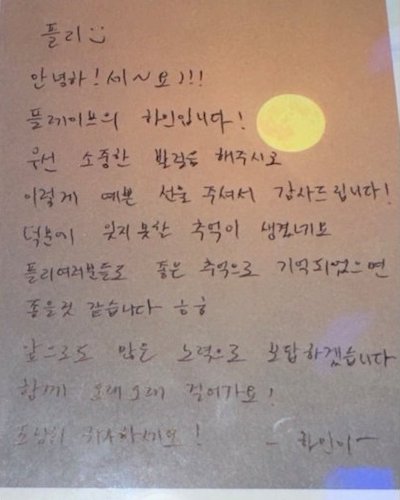 플리 :)
안녕하! 세~요)!!
플레이브의 하민입니다!
우선 소중한 발걸음 해주시고
이렇게 예쁜 선물 주셔서 감사드립니다!
덕분에 잊지 못할 추억이 생겼네요
플리여러분들도 좋은 추억으로 기억되었으면
좋을것 같습니다 ㅎㅎ
앞으로도 많은 노력으로 보답하겠습니다
함께 오래오래 걸어가요!
조심히 하세요!
- 하민이 -